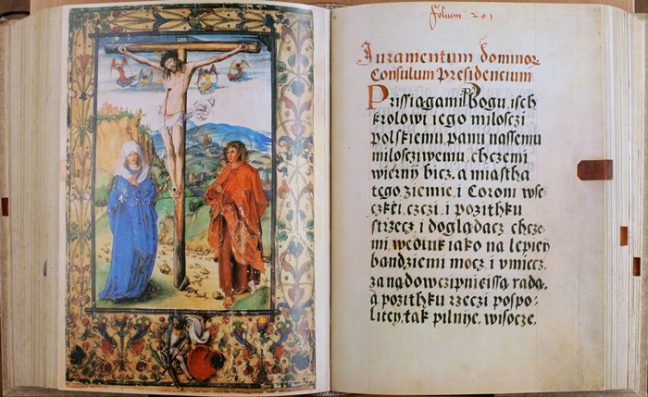 folium 201
Iuramentum dominor
Consulum Presidencium
Prissiągami Bogu, isch
krolowi iego miloſczi
polskiemu panu naſſemu
miloſcziwemu, chczemi
wierny bicz, a miaſtha
tego ziemie, i Coroni wſe
czkęi, czczi, i pozithku
ſtrzecz i dogladacz chcze
mi, wedluk iako na lepiey
bandziemi mocz, i vmiecz,
za nadowczipnieiſſą, radą,
a pozithku rzeczi poſpo-
litey, tak pilnie, wiſocze,